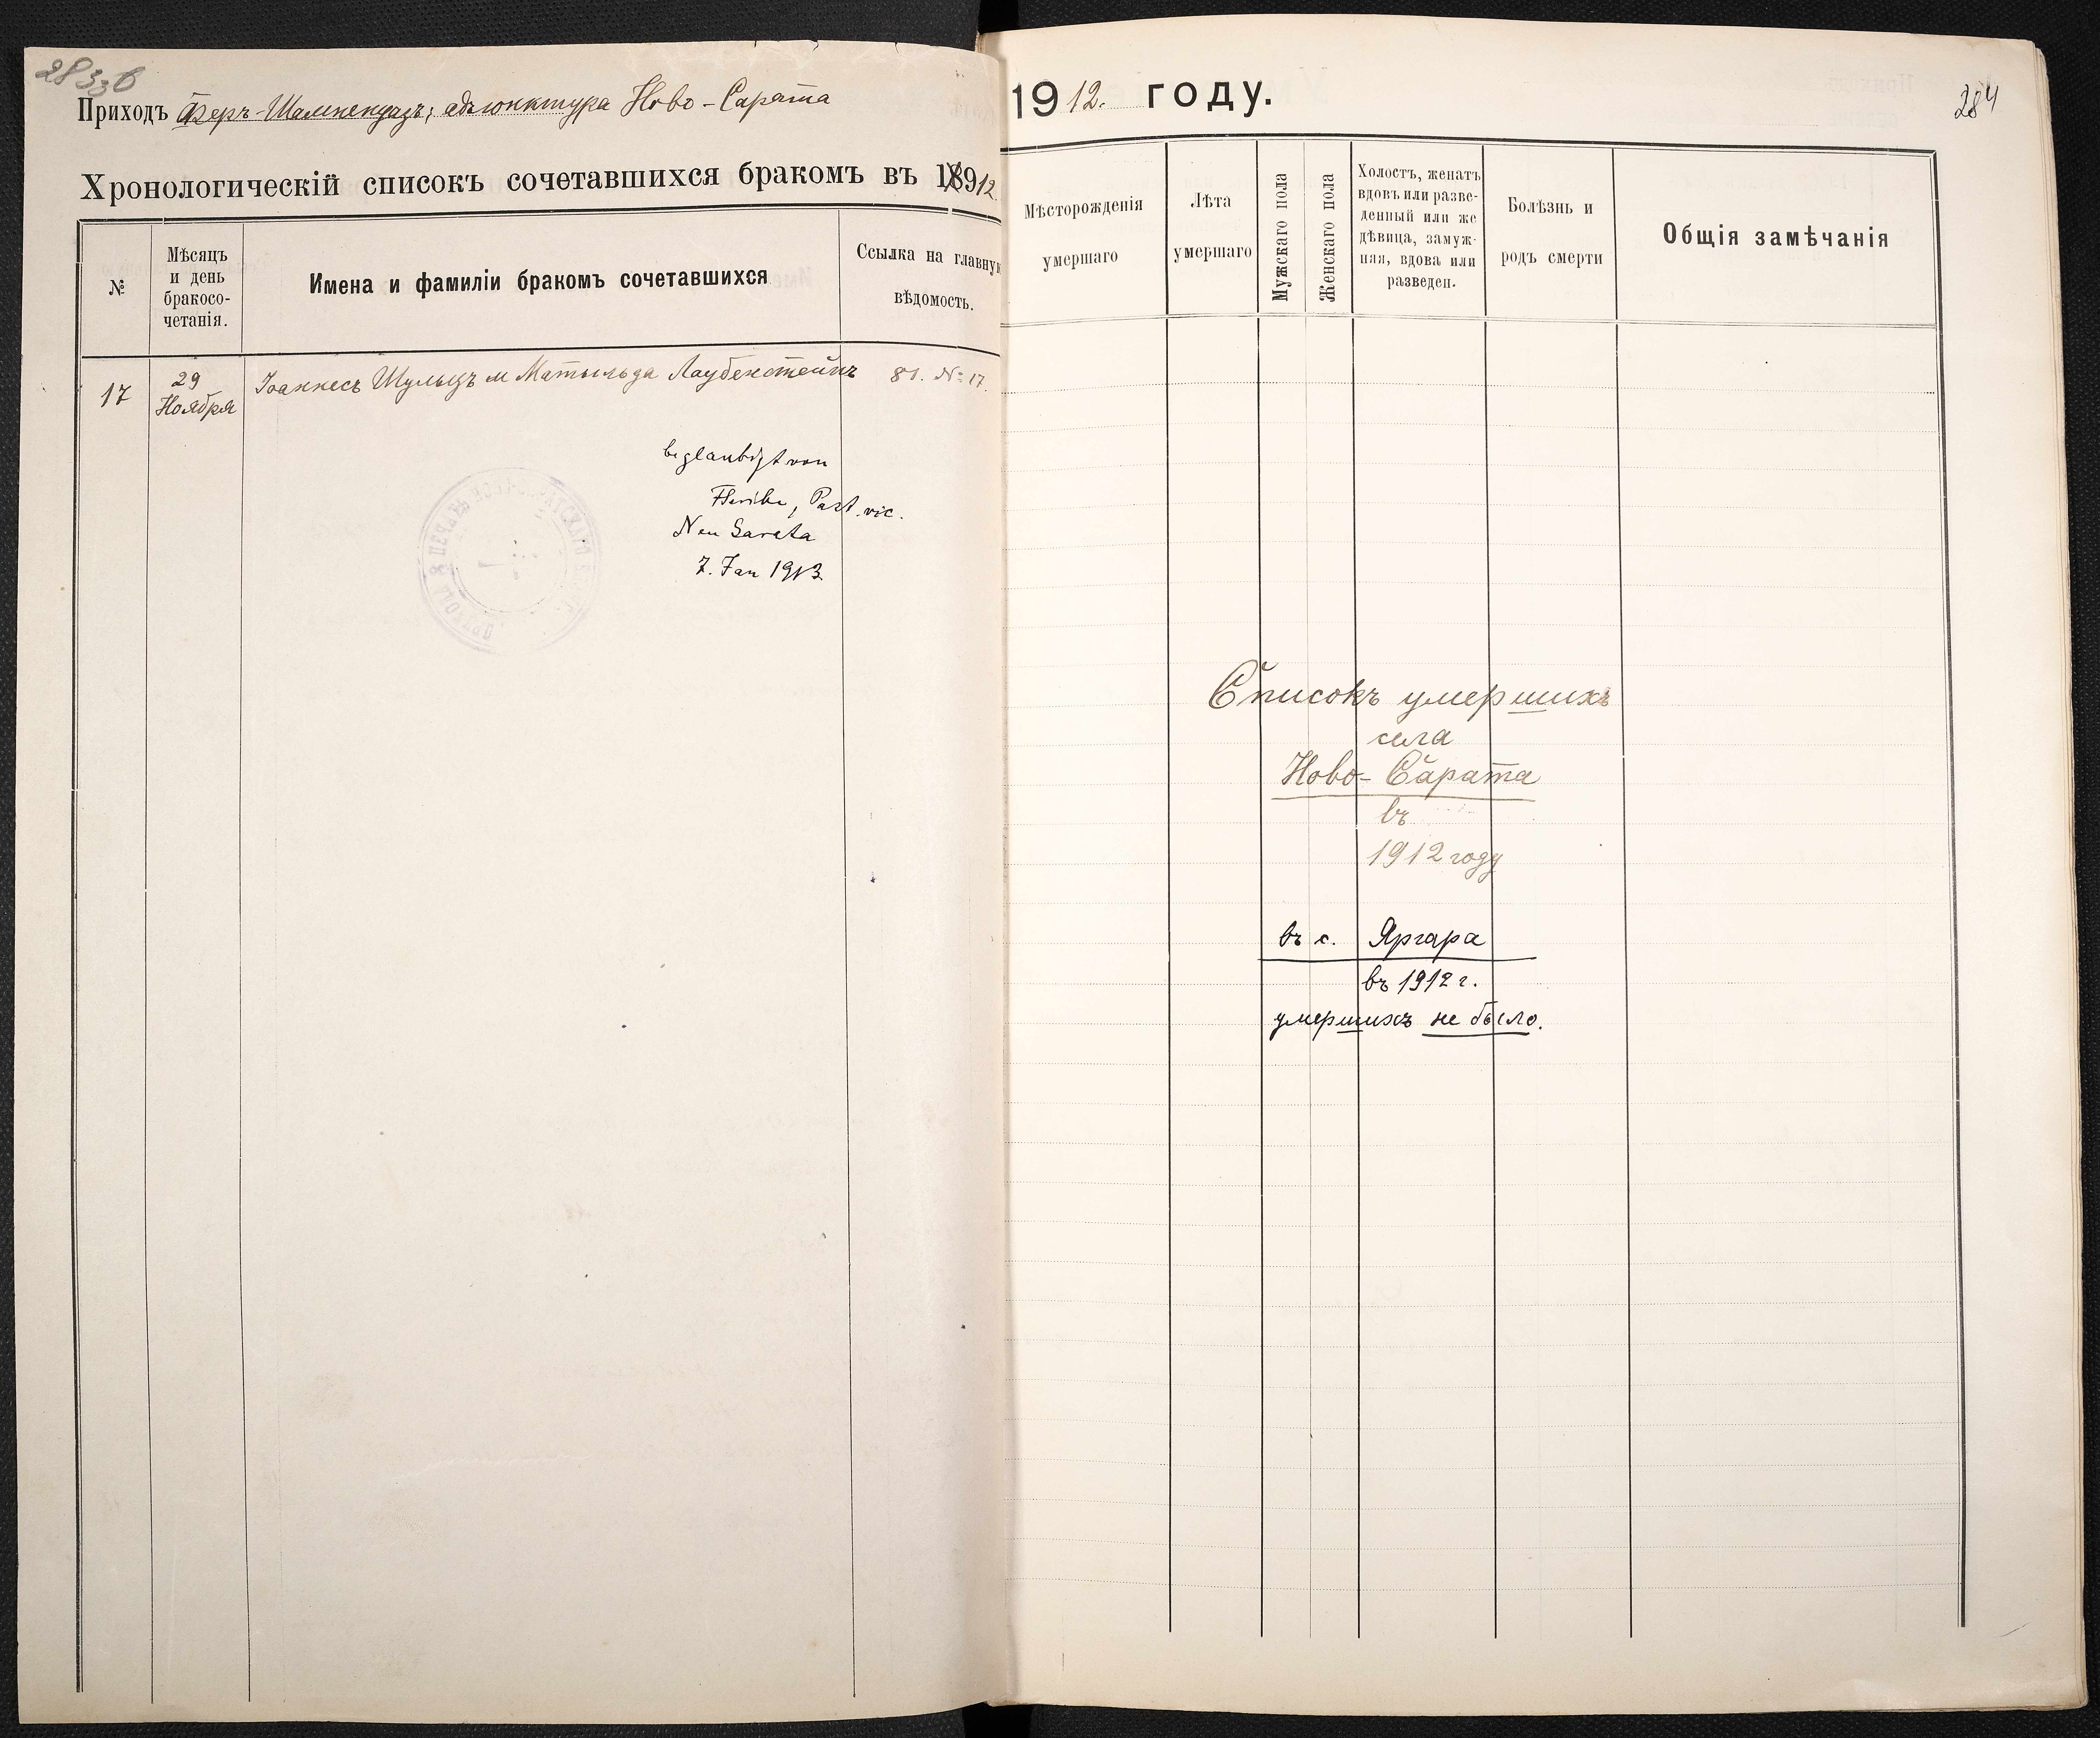 283 об
Приходъ Феръ-Шампенуазъ; адъюнктура Ново-Сарата
Хронологическій списокъ сочетавшихся бракомъ въ 18912.
№
Мѣсяцъ
и день
бракосо-
четанія.
Имена и фамиліи бракомъ сочетавшихся
Ссылка на главную
вѣдомость.
17
29
Ноября
Іоаннесъ Шульцъ и Матыльда Лаубенстейнъ
81. № 17.
beglaubigt von
Past. vic.
Neu Sarata
7. Jan 1913.
1912. году.
284
Мѣсторожденія
умершаго
Лѣта
умершаго
Мужскаго пола
Женскаго пола
Холостъ, женатъ
вдовъ или разве-
денный или же
дѣвица, замуж-
няя, вдова или
разведен.
Болѣзнь и
родъ смерти
Общія замѣчанія
Списокъ умершихъ
села
Ново-Сарата
въ
1912 году
въ с. Яргара
въ 1912 г.
умершихъ не было.